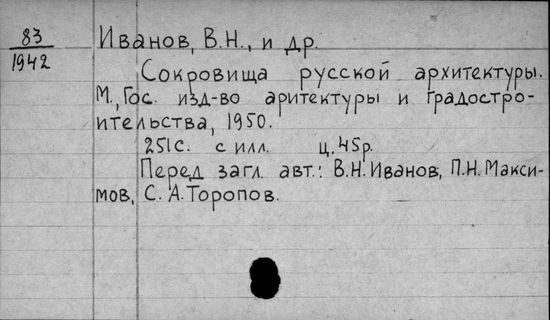 83
1942
Иванов, В.Н., и др.
Сокровища русской архитектуры.
М., Гос. изд-во аритектуры и градостро-
ительства, 1950.
251с. с илл. ц. 45р.
Перед загл. авт.: В.Н. Иванов, П.Н. Макси-
мов, С.А. Торопов.